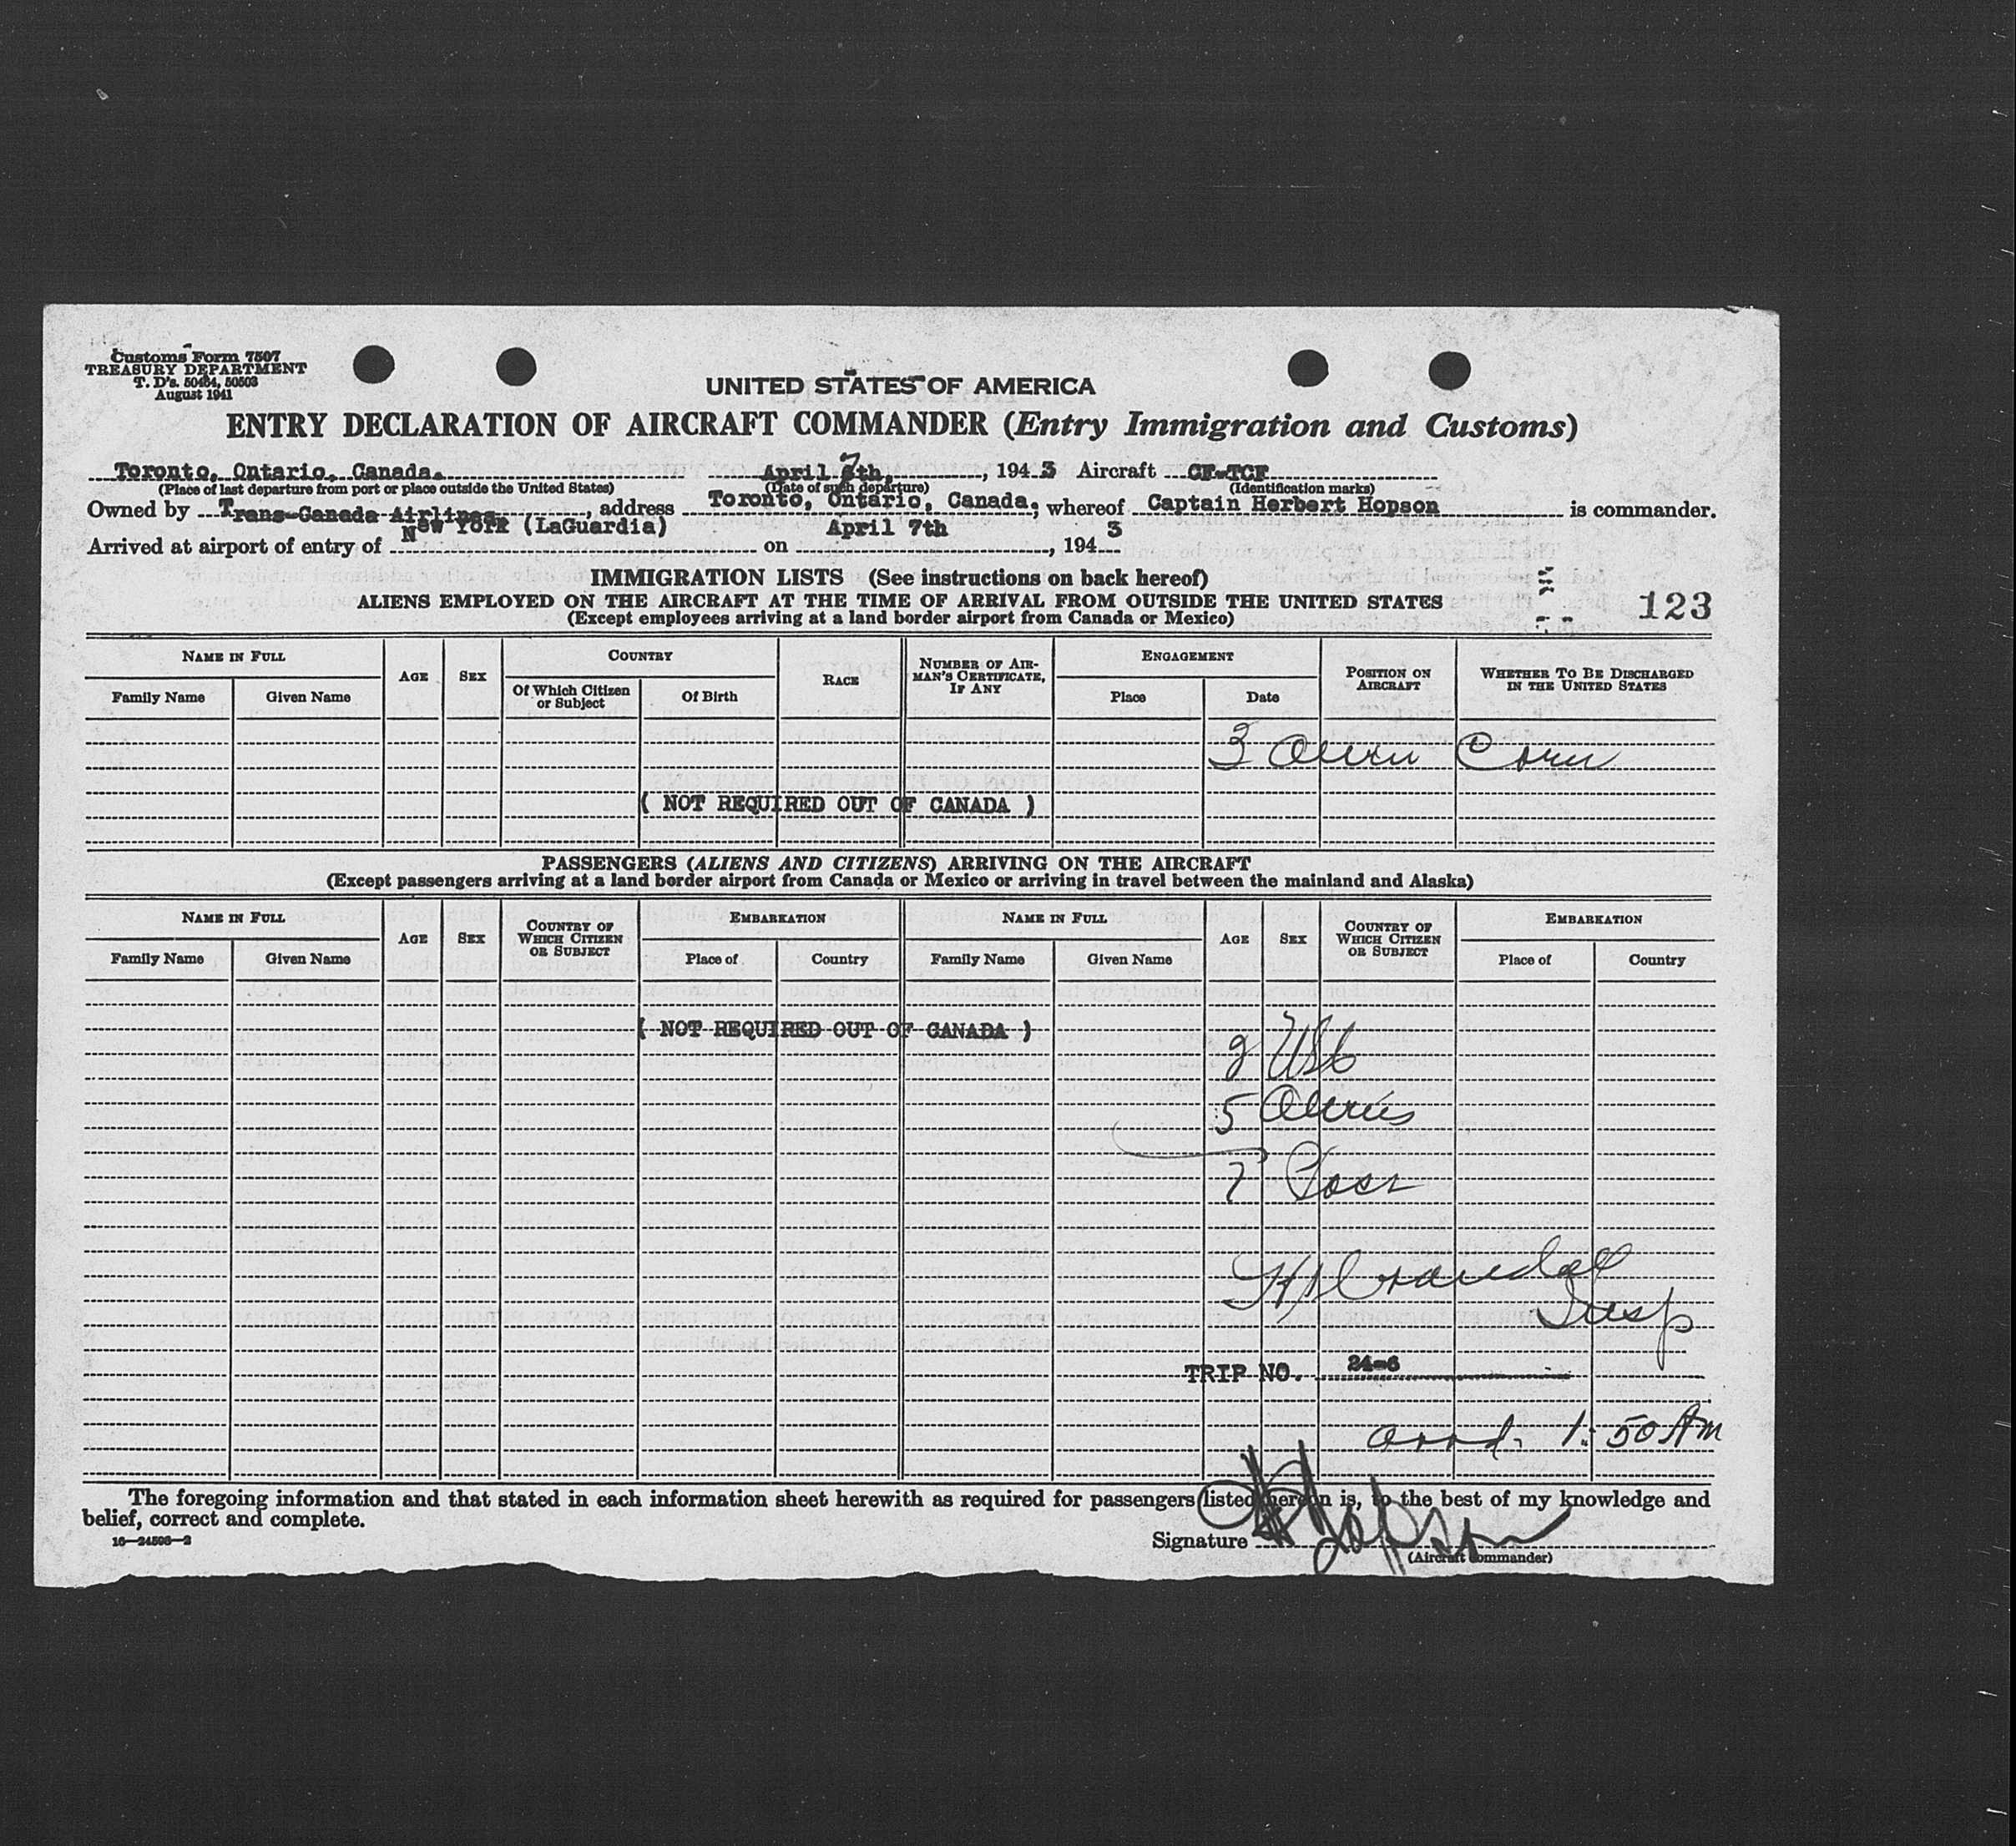 Customs Form 7507
TREASURY DEPARTMENT
T. D's. 50484, 50503
August 1941
UNITED STATES OF AMERICA
ENTRY DECLARATION OF AIRCRAFT COMMANDER (Entry Immigration and Customs)
Toronto, Ontario, Canada. April 7th, , 1943 Aircraft CF-TCF
(Place of last departure from port or place outside the United States) (Date of such departure) (Identification marks)
Owned by Trans-Canada Airlines, address Toronto, Ontario, Canada; whereof Captain Herbert Hopson is commander.
Arrived at airport of entry of New York (LaGuardia) on April 7th, 1943
IMMIGRATION LISTS (See instructions on back hereof)
ALIENS EMPLOYED ON THE AIRCRAFT AT THE TIME OF ARRIVAL FROM OUTSIDE THE UNITED STATES
(Except employees arriving at a land border airport from Canada or Mexico)
123
NAME IN FULL AGE SEX COUNTRY RACE NUMBER OF AIRMAN'S CERTIFICATE, IF ANY ENGAGEMENT POSITION ON AIRCRAFT WHETHER TO BE DISCHARGED IN THE UNITED STATES
Family Name Given Name Of Which Citizen or Subject Of Birth Place Date
3 Alien
( NOT REQUIRED OUT OF CANADA )
PASSENGERS (ALIENS AND CITIZENS) ARRIVING ON THE AIRCRAFT
(Except passengers arriving at a land border airport from Canada or Mexico or arriving in travel between the mainland and Alaska)
NAME IN FULL AGE SEX COUNTRY OF WHICH CITIZEN OR SUBJECT EMBARKATION NAME IN FULL AGE SEX COUNTRY OF WHICH CITIZEN OR SUBJECT EMBARKATION
Family Name Given Name Place of Country Family Name Given Name Place of Country
( NOT REQUIRED OUT OF CANADA )
USC
5 Aliens
7 Pass
Insp
TRIP NO. 24-6
arrd. 1:50 Am
The foregoing information and that stated in each information sheet herewith as required for passengers listed hereon is, to the best of my knowledge and
belief, correct and complete.
16—24508—2
Signature H Hopson
(Aircraft Commander)